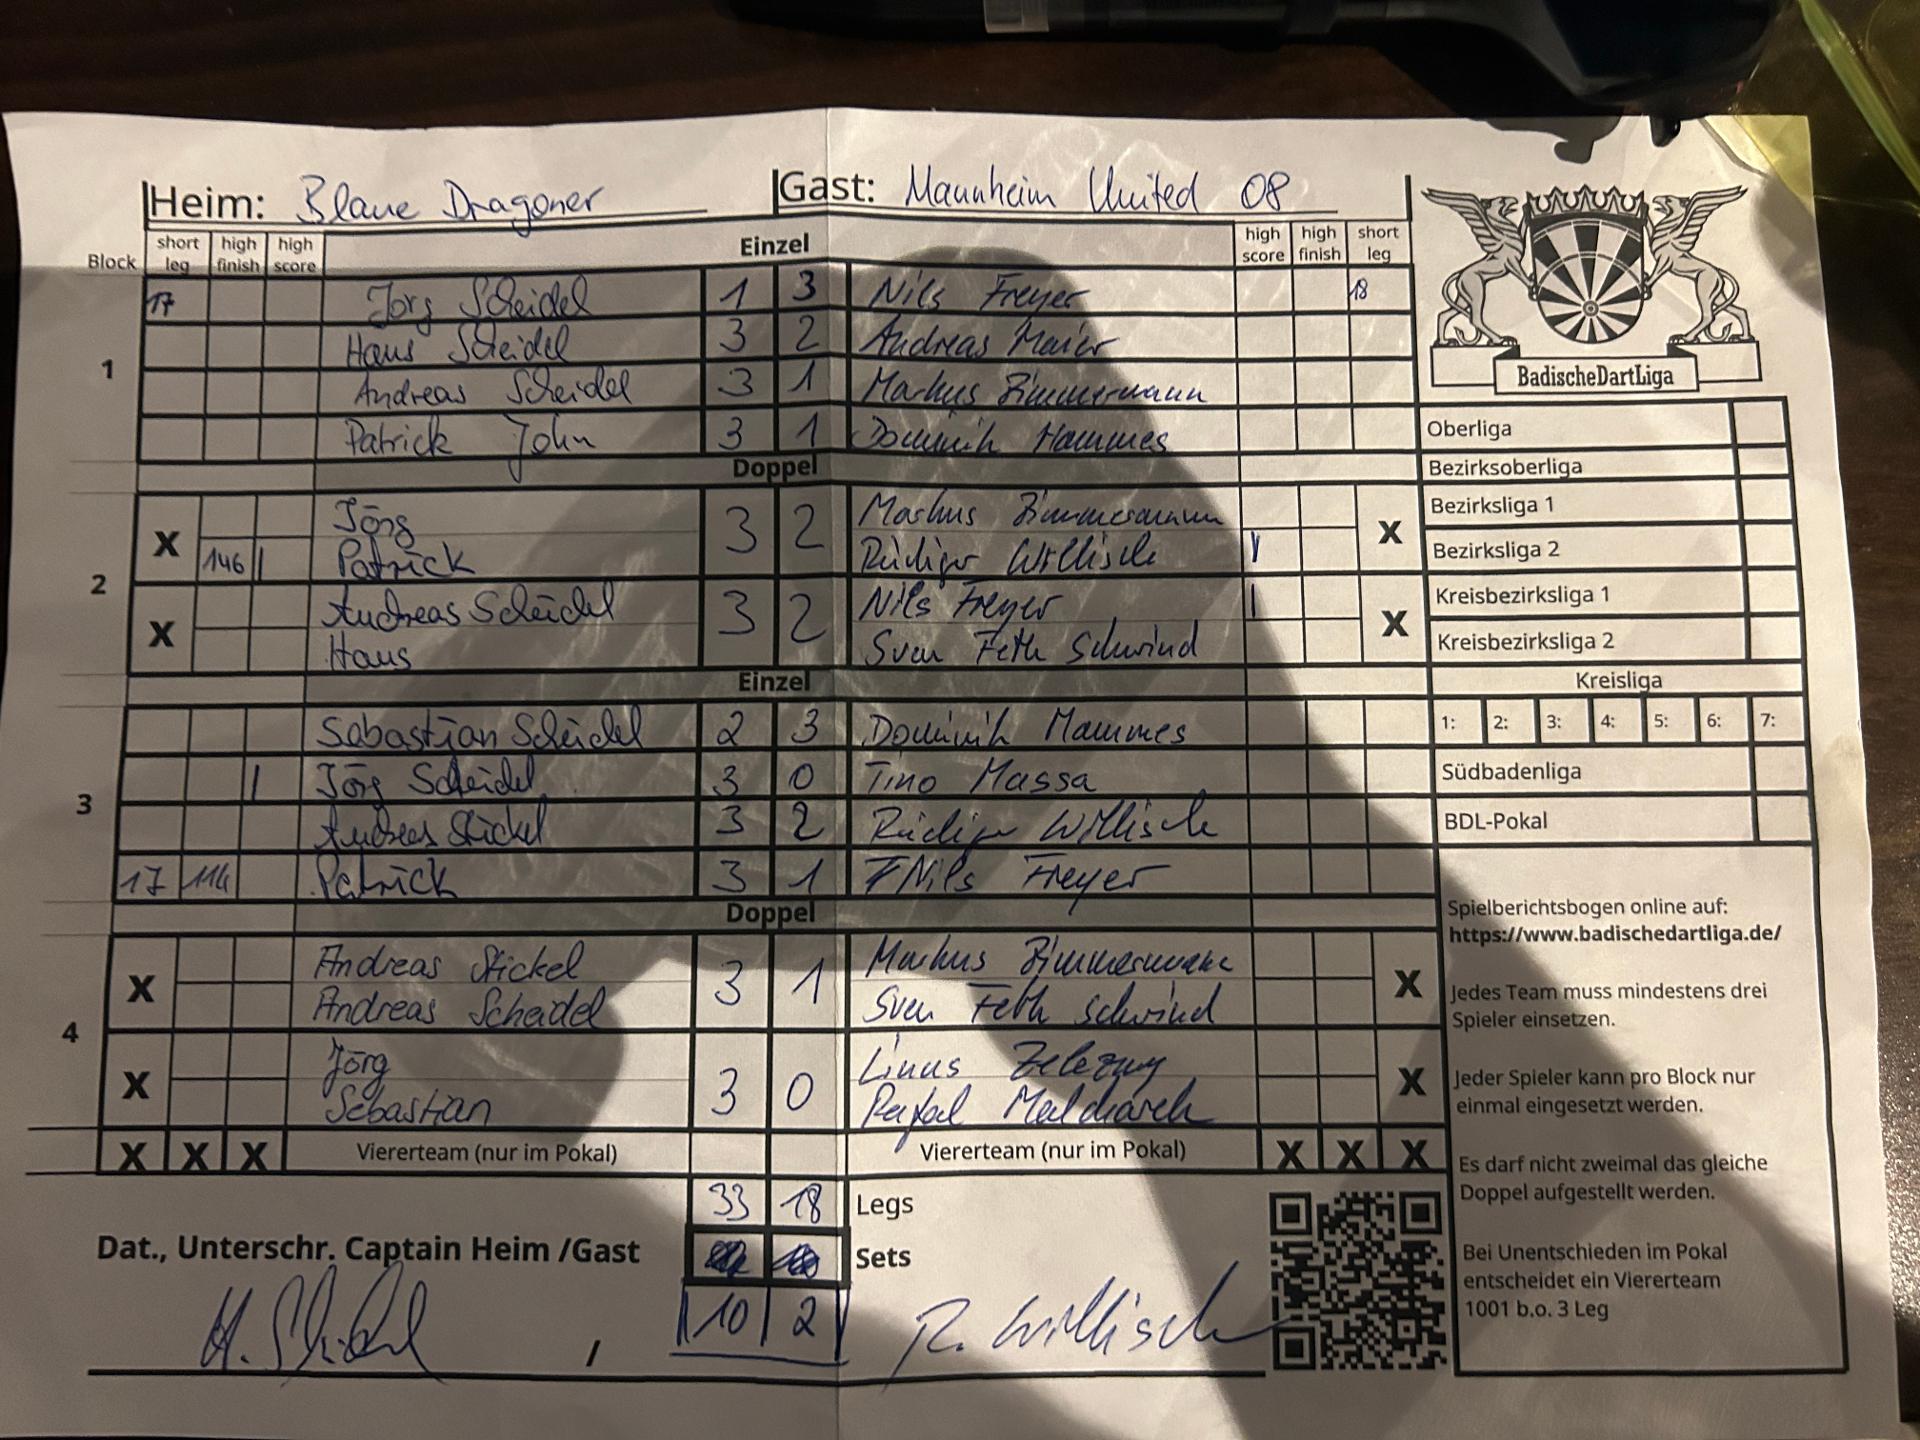 Heim: Blaue Dragoner Gast: Mannheim United 08
Block short leg high finish high score Einzel high score high finish short leg
17 Jörg Scheidel 1 3 Nils Freyer 18
Hans Scheidel 3 2 Andreas Maier
1
Andreas Scheidel 3 1 Markus Zimmermann
Patrick John 3 1 Dominik Hammes
Doppel
X Jörg 3 2 Markus Zimmermann X
146 | Patrick Rüdiger Willisch |
2
X Andreas Scheidel 3 2 Nils Freyer | X
Hans Sven Feth Schwind
Einzel
Sebastian Scheidel 2 3 Dominik Hammes
| Jörg Scheidel 3 0 Tino Massa
3
Andreas Stickel 3 2 Rüdiger Willisch
17 114 Patrick 3 1 Nils Freyer
Doppel
X Andreas Stickel 3 1 Markus Zimmermann X
Andreas Scheidel Sven Feth Schwind
4
X Jörg 3 0 Linus Zelezny X
Sebastian
X X X Vierterteam (nur im Pokal) Vierterteam (nur im Pokal) X X X
33 18 Legs
Dat., Unterschr. Captain Heim /Gast Sets
/ 10 2 R. Willisch
BadischeDartLiga
Oberliga
Bezirksoberliga
Bezirksliga 1
Bezirksliga 2
Kreisbezirksliga 1
Kreisbezirksliga 2
Kreisliga
1: 2: 3: 4: 5: 6: 7:
Südbadenliga
BDL-Pokal
Spielberichtsbogen online auf:
https://www.badischedartliga.de/
Jedes Team muss mindestens drei
Spieler einsetzen.
Jeder Spieler kann pro Block nur
einmal eingesetzt werden.
Es darf nicht zweimal das gleiche
Doppel aufgestellt werden.
Bei Unentschieden im Pokal
entscheidet ein Viererteam
1001 b.o. 3 Leg